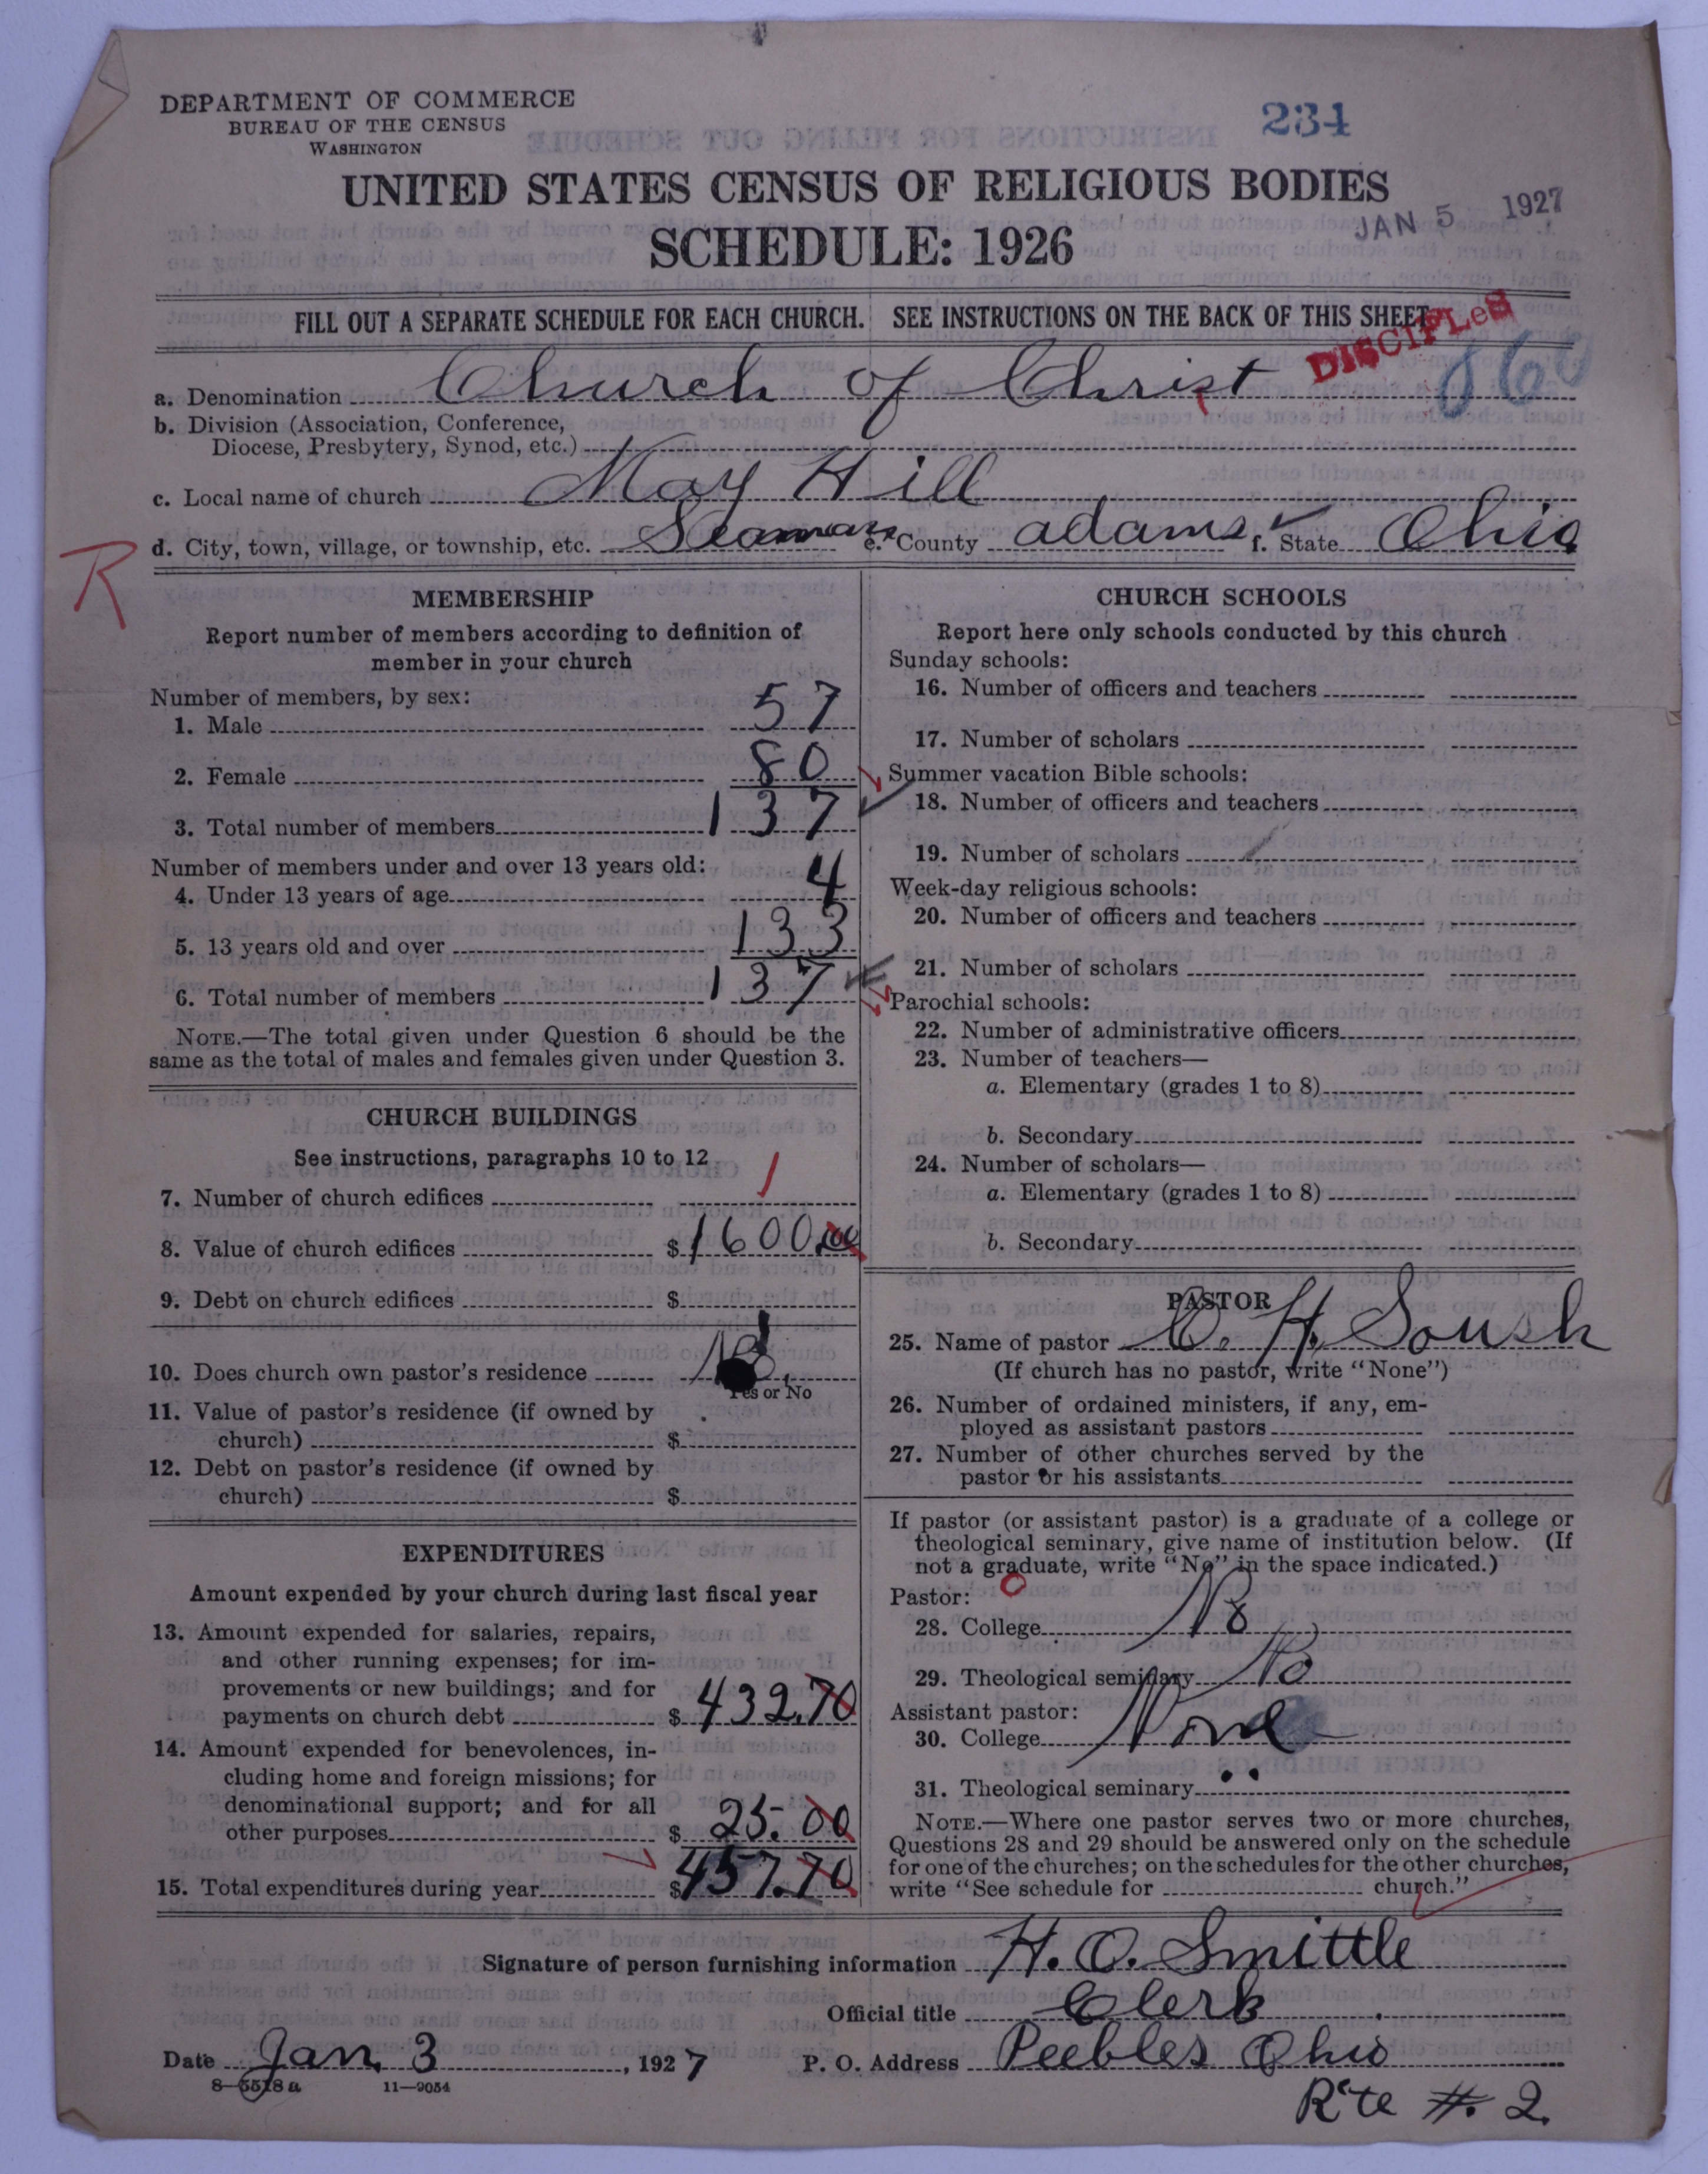 DEPARTMENT OF COMMERCE
BUREAU OF THE CENSUS
WASHINGTON
234
UNITED STATES CENSUS OF RELIGIOUS BODIES
SCHEDULE: 1926
JAN 5 1927
FILL OUT A SEPARATE SCHEDULE FOR EACH CHURCH. SEE INSTRUCTIONS ON THE BACK OF THIS SHEET
DISCIPLES
a. Denomination Church of Christ
b. Division (Association, Conference,
Diocese, Presbytery, Synod, etc.)
c. Local name of church May Hill
d. City, town, village, or township, etc. Seaman e. County adams f. State Ohio
R
MEMBERSHIP
Report number of members according to definition of
member in your church
Number of members, by sex:
1. Male 57
2. Female 80
3. Total number of members 137
Number of members under and over 13 years old:
4. Under 13 years of age 4
5. 13 years old and over 133
6. Total number of members 137
NOTE.—The total given under Question 6 should be the
same as the total of males and females given under Question 3.
CHURCH BUILDINGS
See instructions, paragraphs 10 to 12
7. Number of church edifices 1
8. Value of church edifices $1600.00
9. Debt on church edifices $
10. Does church own pastor's residence No
Yes or No
11. Value of pastor's residence (if owned by
church) $
12. Debt on pastor's residence (if owned by
church) $
EXPENDITURES
Amount expended by your church during last fiscal year
13. Amount expended for salaries, repairs,
and other running expenses; for im-
provements or new buildings; and for
payments on church debt $ 432.70
14. Amount expended for benevolences, in-
cluding home and foreign missions; for
denominational support; and for all
other purposes $ 25.00
15. Total expenditures during year $457.70
CHURCH SCHOOLS
Report here only schools conducted by this church
Sunday schools:
16. Number of officers and teachers
17. Number of scholars
Summer vacation Bible schools:
18. Number of officers and teachers
19. Number of scholars
Week-day religious schools:
20. Number of officers and teachers
21. Number of scholars
Parochial schools:
22. Number of administrative officers
23. Number of teachers—
a. Elementary (grades 1 to 8)
b. Secondary
24. Number of scholars—
a. Elementary (grades 1 to 8)
b. Secondary
PASTOR
25. Name of pastor H.
(If church has no pastor, write "None")
26. Number of ordained ministers, if any, em-
ployed as assistant pastors
27. Number of other churches served by the
pastor or his assistants
If pastor (or assistant pastor) is a graduate of a college or
theological seminary, give name of institution below. (If
not a graduate, write "No" in the space indicated.)
Pastor:
28. College No
29. Theological seminary No
Assistant pastor:
30. College None
31. Theological seminary
NOTE.—Where one pastor serves two or more churches,
Questions 28 and 29 should be answered only on the schedule
for one of the churches; on the schedules for the other churches,
write "See schedule for church."
Signature of person furnishing information H. O. Smittle
Official title Clerk
Date Jan. 3, 1927 P. O. Address Peebles Ohio
8—5518 a 11—9054
Rte #. 2.